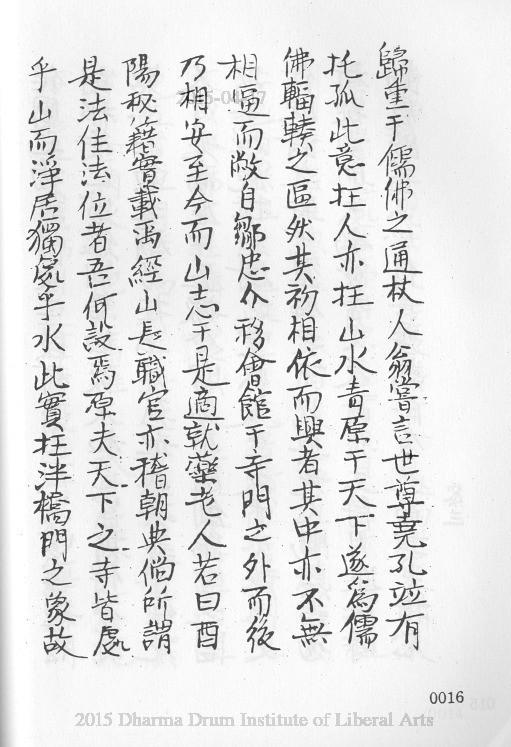 歸重于儒佛之通杖人翁嘗言世尊堯孔竝有
托孤此意在人亦在山水青原于天下遂爲儒
佛輻輳之區然其初相依而興者其中亦不無
相逼而敝自鄒忠介移會館于寺門之外而後
乃相安至今而山志于是適就藥老人若曰酉
陽秘籍實載禹經山長職官亦稽朝典倘所謂
是法住法位者吾何設焉原夫天下之寺皆處
乎山而淨居獨處乎水此實在泮橋門之象故
0016
2015 Dharma Drum Institute of Liberal Arts